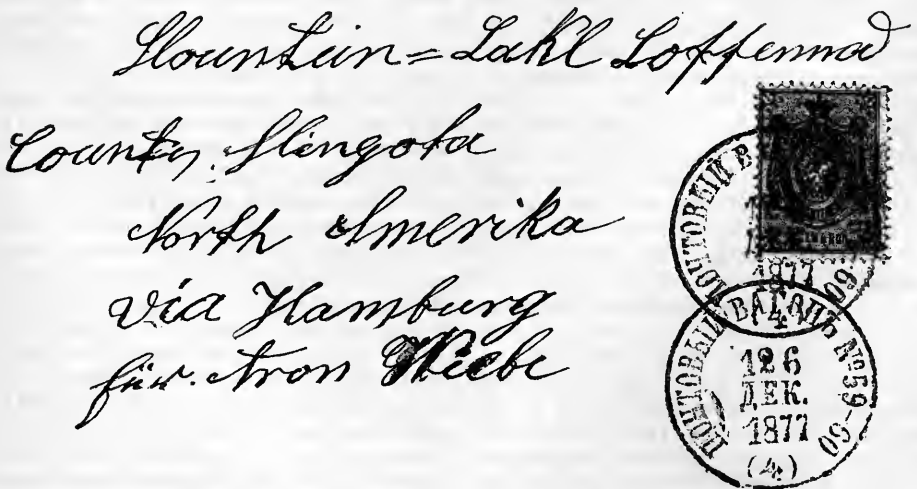 Mountain = Lakl Loffennad
County Mingota
North Amerika
via Hamburg
für Aron Wiebe
ПОЧТОВЫЙ В
1877
09
ПОЧТОВЫЙ ВАГОНЪ № 59-60
126
ДЕК.
1877
(4)